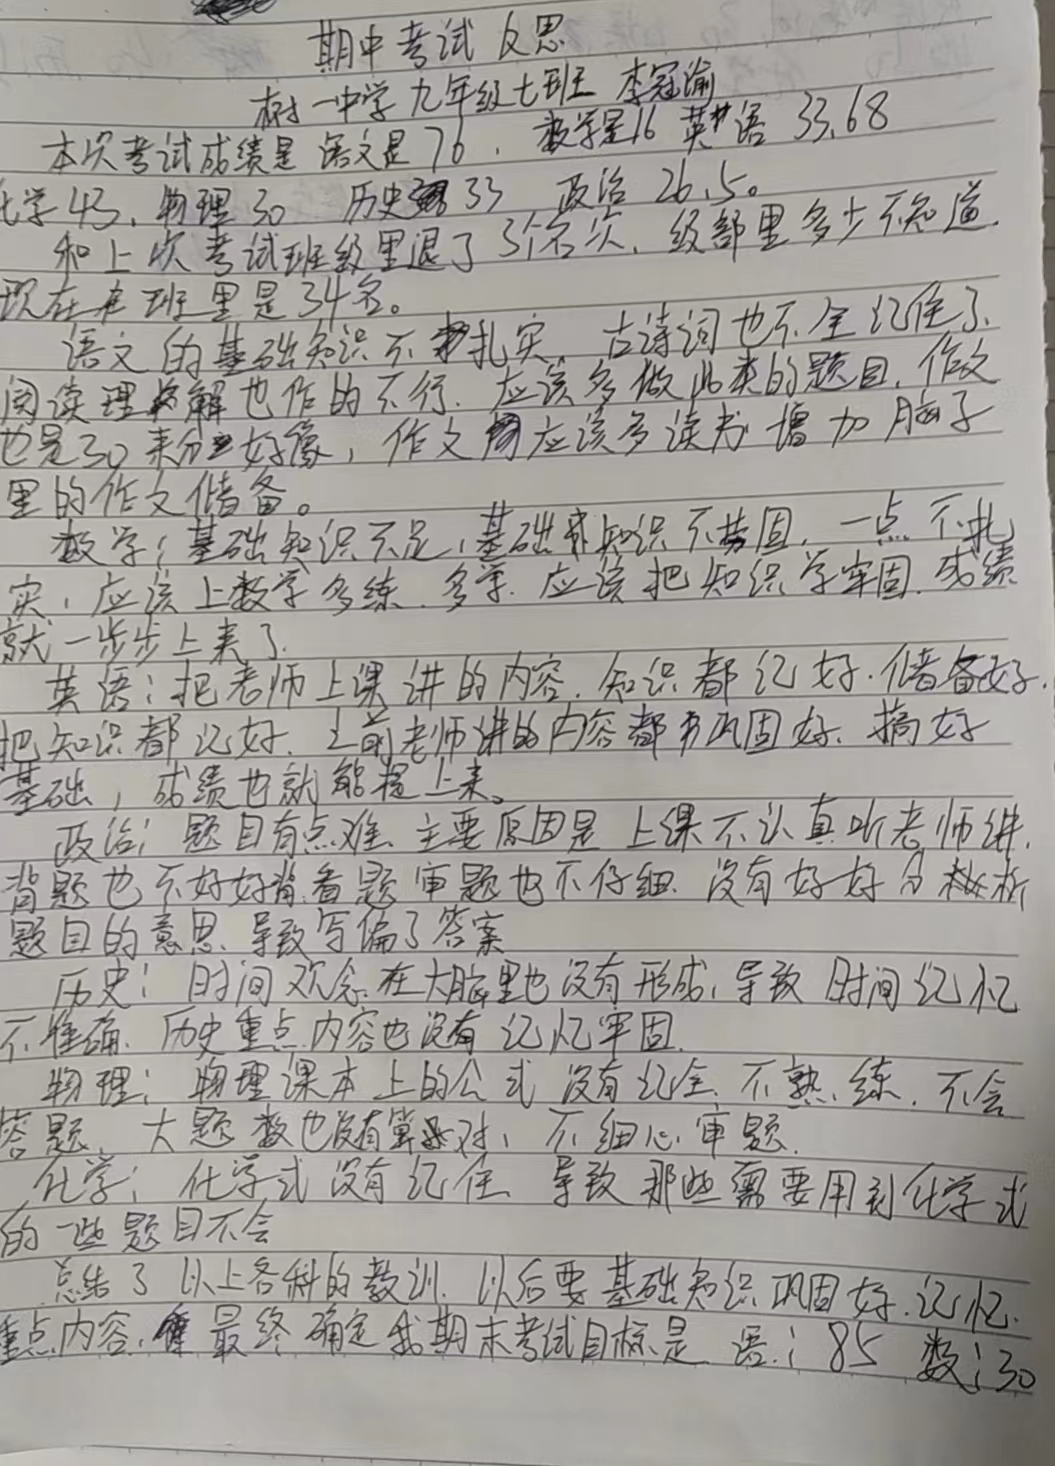 期中考试反思
树一中学九年级七班 李冠渝
本次考试成绩是语文是76，数学是16 英语 33.68
化学43，物理30 历史33 政治 26.5。
和上次考试班级里退了3个名次，级部里多少不知道.
现在在班里是34名。
语文的基础知识不扎实、古诗词也不全记住了.
阅读理解也作的不行. 应该多做此类的题目. 作文
也是30来分好像，作文应该多读书增加脑子
里的作文储备。
数学：基础知识不足，基础知识不牢固，一点不扎
实，应该上数学多练.多学.应该把知识学牢固.成绩
就一步步上来了.
英语：把老师上课讲的内容.知识都记好.储备好.
把知识都记好. 之前老师讲的内容都巩固好. 搞好
基础，成绩也就能提上来。
政治：题目有点难. 主要原因是上课不认真听老师讲.
背题也不好好背.看题审题也不仔细. 没有好好分析
题目的意思、导致写偏了答案
历史：时间观念在大脑里也没有形成，导致时间记忆
不准确. 历史重点内容也没有记忆牢固.
物理：物理课本上的公式没有记全、不熟练. 不会
答题、大题数也没有算对、不细心审题.
化学：化学式没有记住、导致那些需要用到化学式
的一些题目不会
总结了以上各科的教训. 以后要基础知识巩固好.记忆.
重点内容. 最终确定我期末考试目标是 语：85 数：30